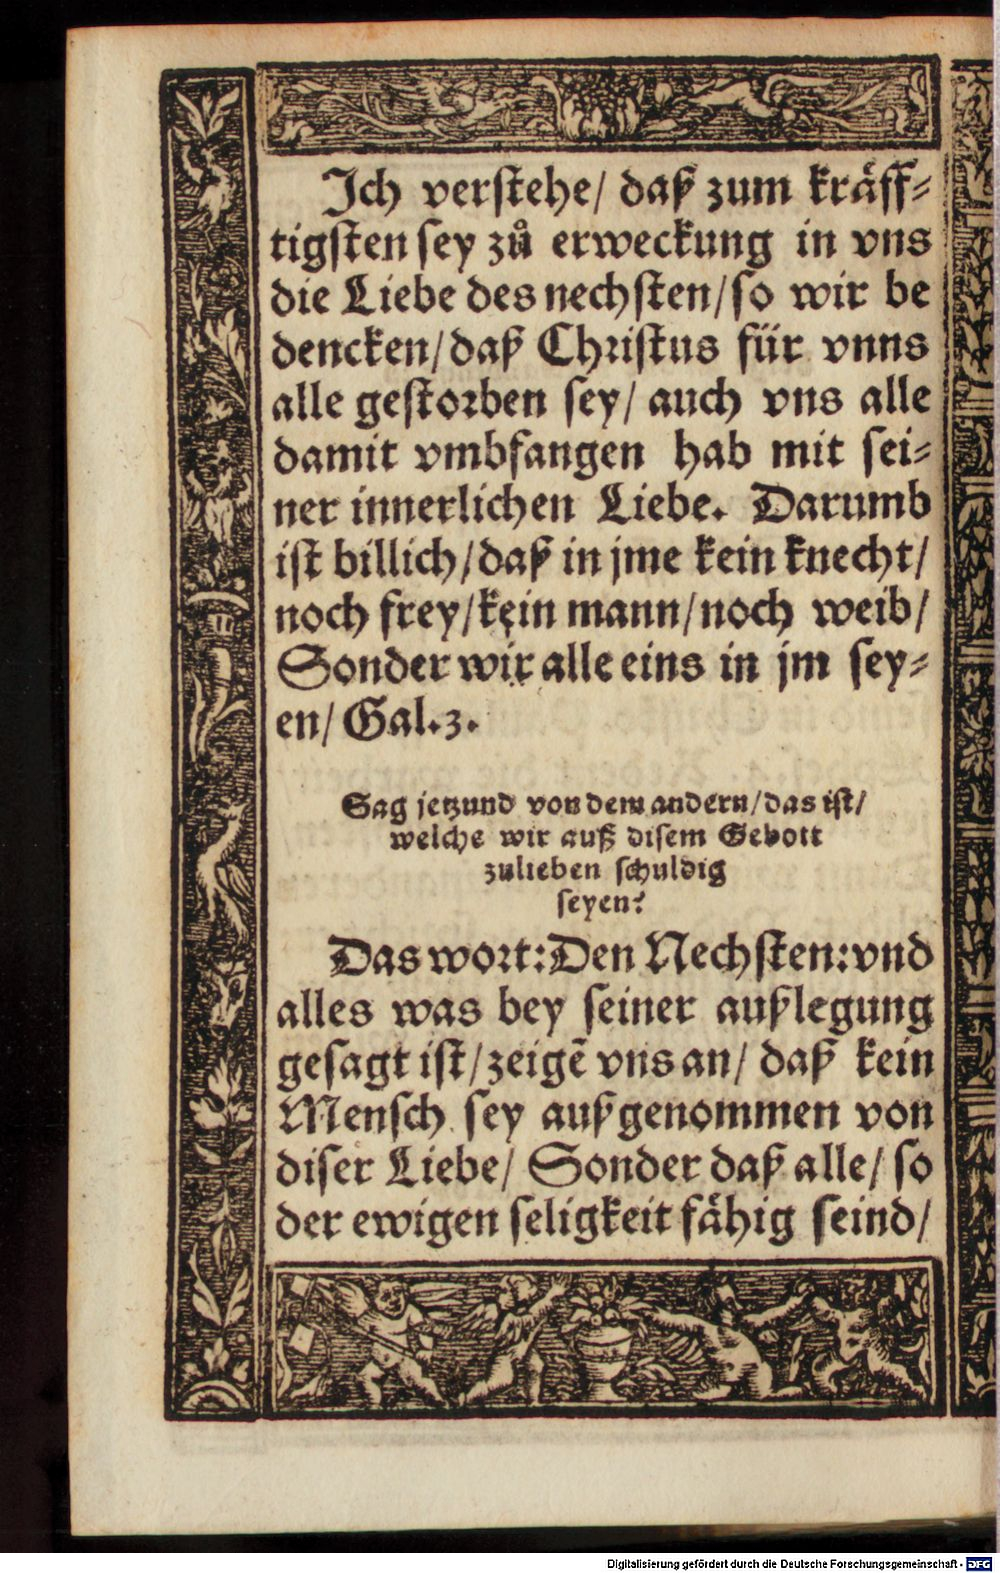 Ich verstehe/ daß zum kräff-
tigsten sey zů erweckung in vns
die Liebe des nechsten/ so wir be
dencken/ daß Christus für vnns
alle gestorben sey/ auch vns alle
damit vmbfangen hab mit sei-
ner innerlichen Liebe. Darumb
ist billich/ daß in jme kein knecht/
noch frey/ kein mann/ noch weib/
Sonder wir alle eins in jm sey-
en/ Gal. 3.
Sag jetzund von dem andern/ das ist/
welche wir auß disem Gebott
zulieben schuldig
seyen?
Das wort: Den Nechsten: vnd
alles was bey seiner außlegung
gesagt ist/ zeigẽ vns an/ daß kein
Mensch sey außgenommen von
diser Liebe/ Sonder daß alle/ so
der ewigen seligkeit fähig seind/
Digitalisierung gefördert durch die Deutsche Forschungsgemeinschaft - DFG